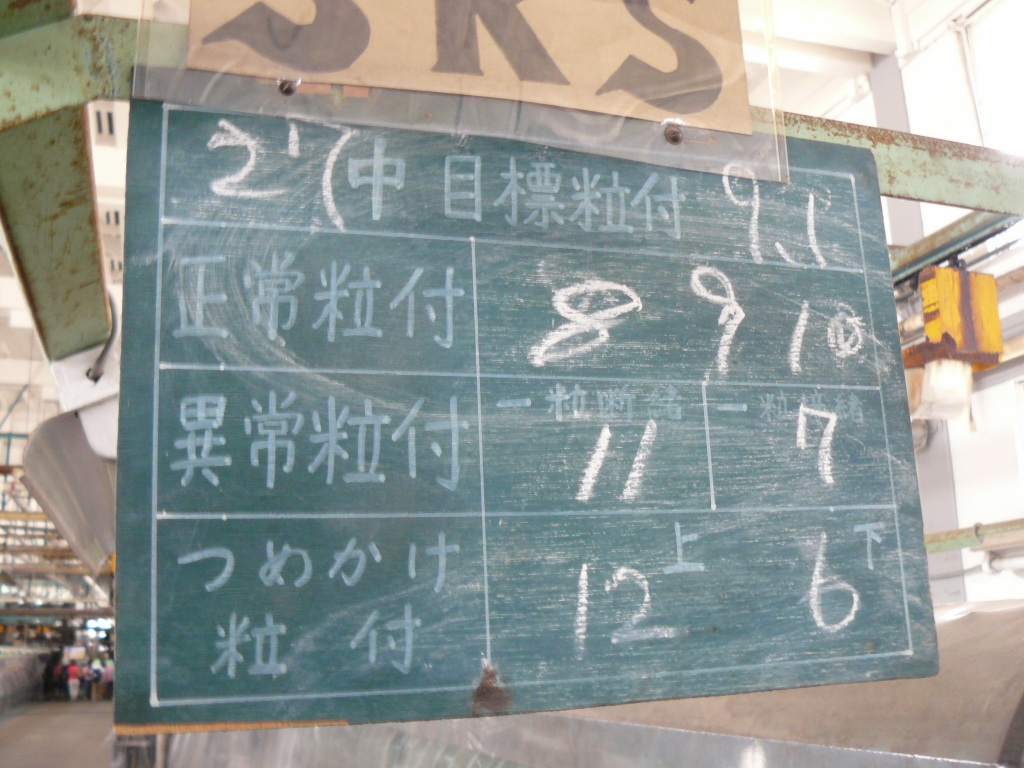 SRS
27中 目標粒付 9.1
正常粒付 8 9 10
異常粒付 一粒断緒 11 一粒 緒 7
つめかけ 上 下
粒付 12 6